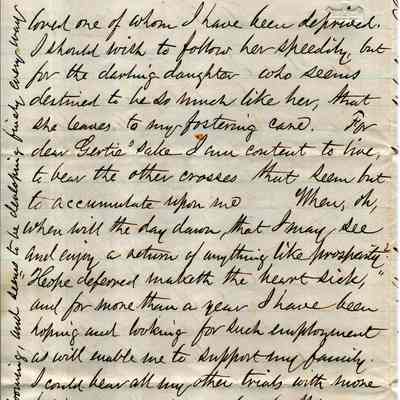 loved one of whom I have been deprived.
I should wish to follow her speedily, but
for the darling daughter who seems
destined to be so much like her, that
she leaves to my fostering care. For
dear Gertie's sake I am content to live,
to bear the other crosses that seem but
to accumulate upon me When, oh,
when will the day dawn, that I may see
and enjoy a return of anything like prosperity?
"Hope deferred maketh the heart sick,"
and for more than a year I have been
hoping and looking for such employment
as will enable me to support my family.
I could bear all my other trials with more
and seems to be developing finely every way